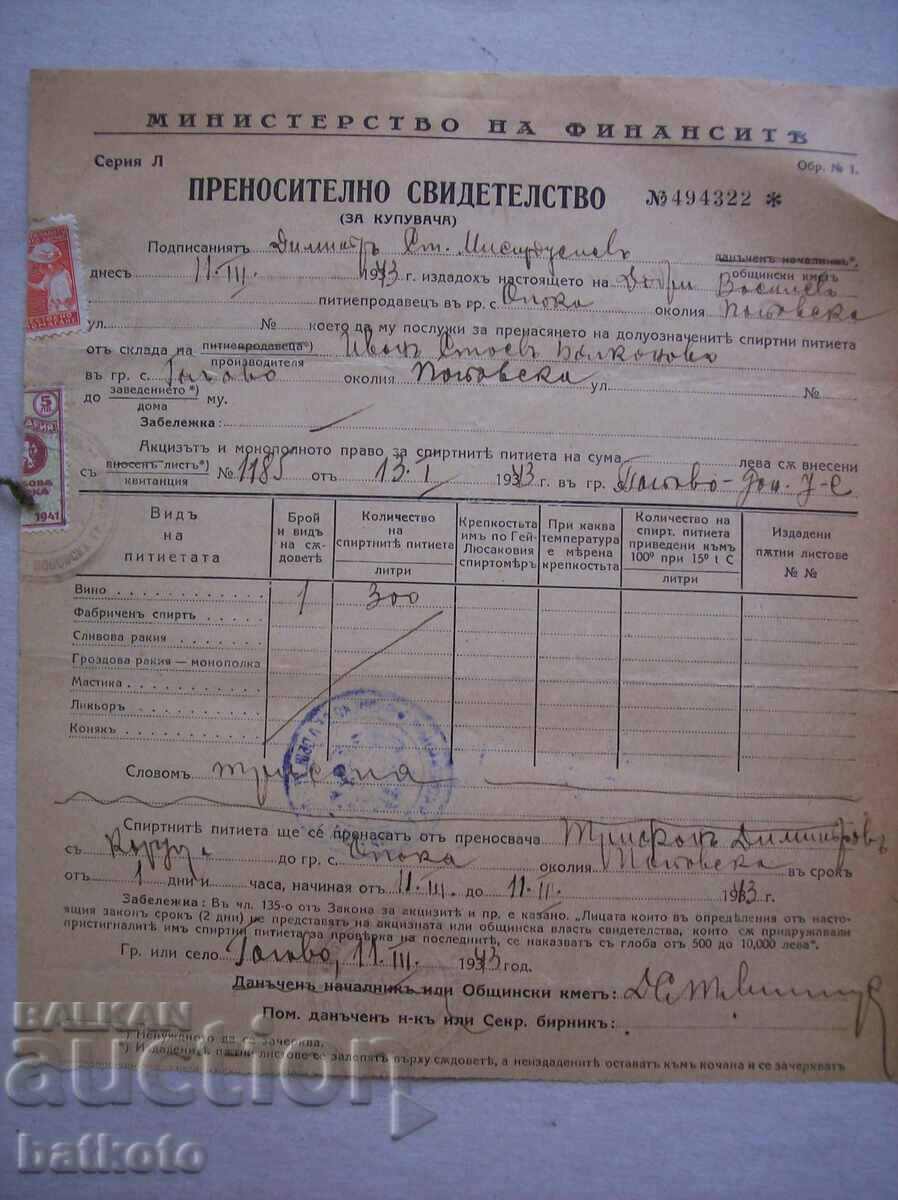 МИНИСТЕРСТВО НА ФИНАНСИТѢ
Серия Л
Обр. № 1.
ПРЕНОСИТЕЛНО СВИДЕТЕЛСТВО №494322 *
(ЗА КУПУВАЧА)
Подписаниятъ Димитръ Ст. данъченъ началникъ*)
общински кметъ
днесъ 11.III. 1943 г. издадохъ настоящето на Добри Василевъ
питиепродавецъ въ гр. с. Опака околия Поповска
ул. № което да му послужи за пренасянето на долуозначенитѣ спиртни питиета
отъ склада на питиепродавеца*) Иванъ Стоевъ
производителя
въ гр. с. Гагово околия Поповска ул. №
до заведението*) му.
дома
Забележка:
Акцизътъ и монополното право за спиртнитѣ питиета на сума лева сѫ внесени
съ вносенъ листъ*) № 1185 отъ 13.I 1943 г. въ гр. Попово
квитанция
Видъ на питиетата
Брой и видъ на сѫдоветѣ
Количество на спиртнитѣ питиета
литри
Крепкостьта имъ по Гей-Люсаковия спиртомѣръ
При каква температура е мѣрена крепкостьта
Количество на спирт. питиета приведени къмъ 100° при 15° t C
литри
Издадени пѫтни листове № №
Вино 1 300
Фабриченъ спиртъ
Сливова ракия
Гроздова ракия — монополка
Мастика
Ликьоръ
Конякъ
Словомъ триста
Спиртнитѣ питиета ще се пренасятъ от преносвача Трифонъ Димитровъ
съ до гр. с. Опака околия Поповска въ срокъ
отъ 1 дни и часа, начиная отъ 11.III. до 11.III. 1943 г.
Забележка: Въ чл. 135-о отъ Закона за акцизите и пр. е казано. „Лицата които въ опредѣления отъ насто-
ящия законъ срокъ (2 дни) не представятъ на акцизната или общинска власть свидетелства, които сѫ придружавали
пристигналитѣ имъ спиртни питиета за провѣрка на последнитѣ, се наказватъ съ глоба отъ 500 до 10,000 лева“.
Гр. или село Гагово, 11.III. 1943 год.
Данъченъ началникъ или Общински кметъ:
Пом. данъченъ н-къ или Секр. бирникъ:
*) Ненуждното да се зачерква.
*) Издаденитѣ пѫтни листове се залепятъ върху сѫдоветѣ, а неиздаденитѣ оставатъ къмъ кочана и се зачеркватъ
5 ЛВ.
1941
BALKAN
auction
batkoto